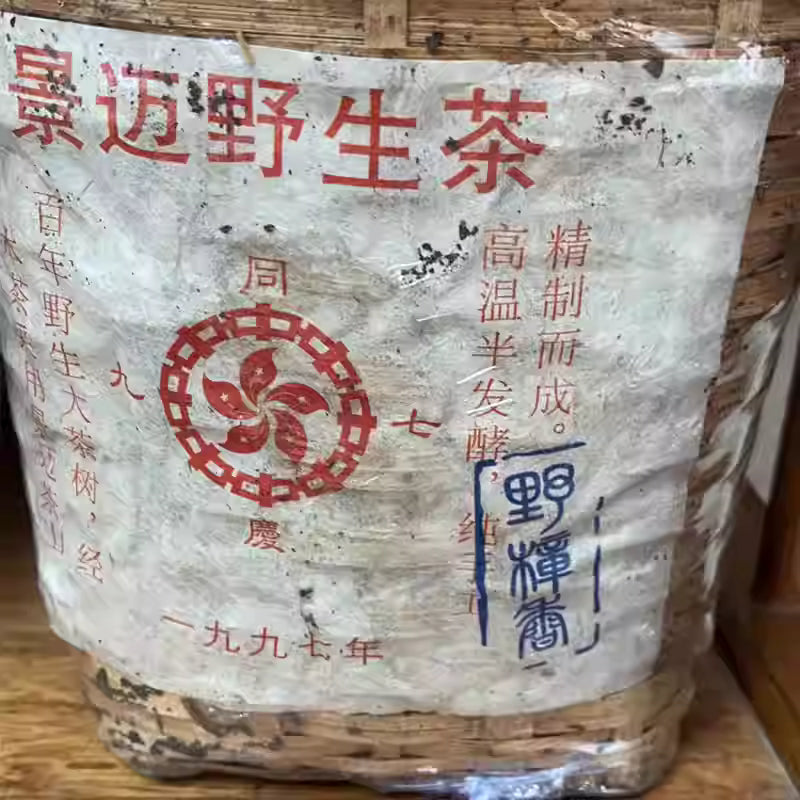 景迈野生茶
本茶采用景迈茶山
百年野生大茶树，经
同
九
七
慶
高温半发酵，结
精制而成。
野樟香
一九九七年